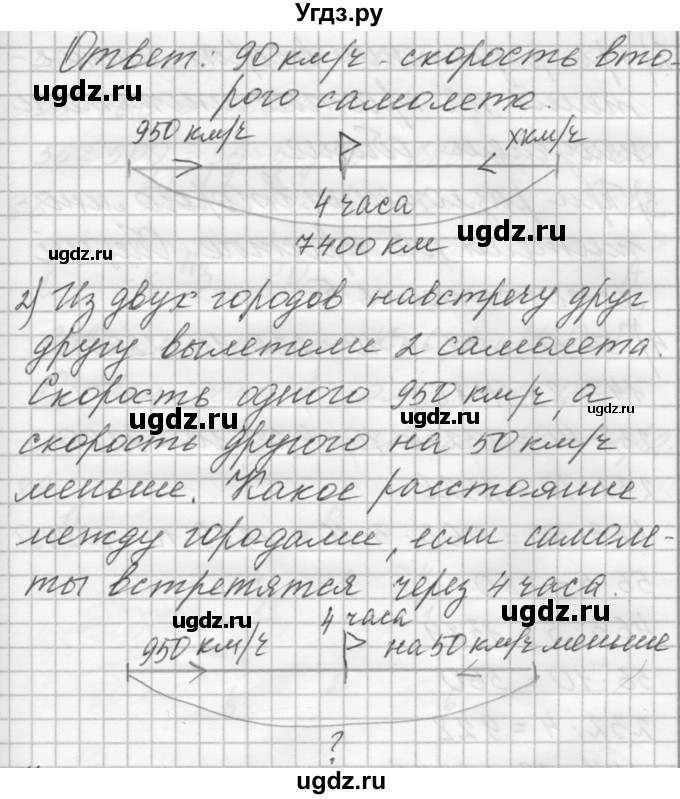 Угдз.ру
Ответ: 90 км/ч - скорость вто-
рого самолета.
ugdz.ru
950 км/ч
ugdz.ru
х км/ч
4 часа
7400 км
ugdz.ru
ugdz.ru
2) Из двух городов навстречу друг
другу вылетели 2 самолета.
Скорость одного 950 км/ч, а
ugdz.ru
ugdz.ru
скорость другого на 50 км/ч
ugdz.ru
меньше. Какое расстояние
между городами, если самоле-
ты встретятся через 4 часа.
ugdz.ru
ugdz.ru
4 часа
950 км/ч
на 50 км/ч меньше
ugdz.ru
ugdz.ru
?
ugdz.ru